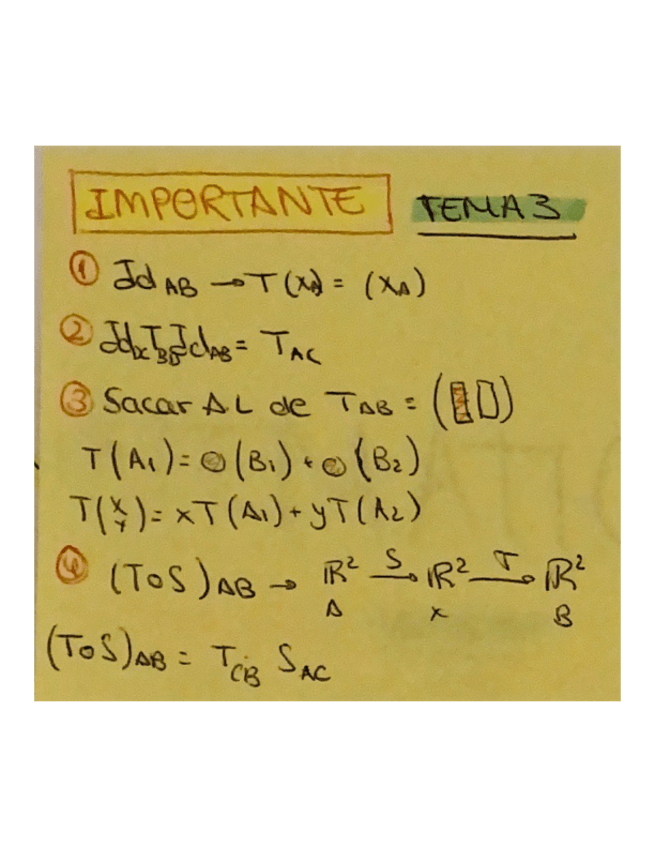 IMPORTANTE TEMA 3
① Id AB → T(xA) = (xA)
② Id T BD Id AB = T AC
③ Sacar AL de T AB = ( )
T(A₁) = (B₁) + (B₂)
T(x y) = xT(A₁) + yT(A₂)
④ (T∘S) AB → ℝ² S→ ℝ² T→ ℝ²
A x B
(T∘S) AB = T CB S AC